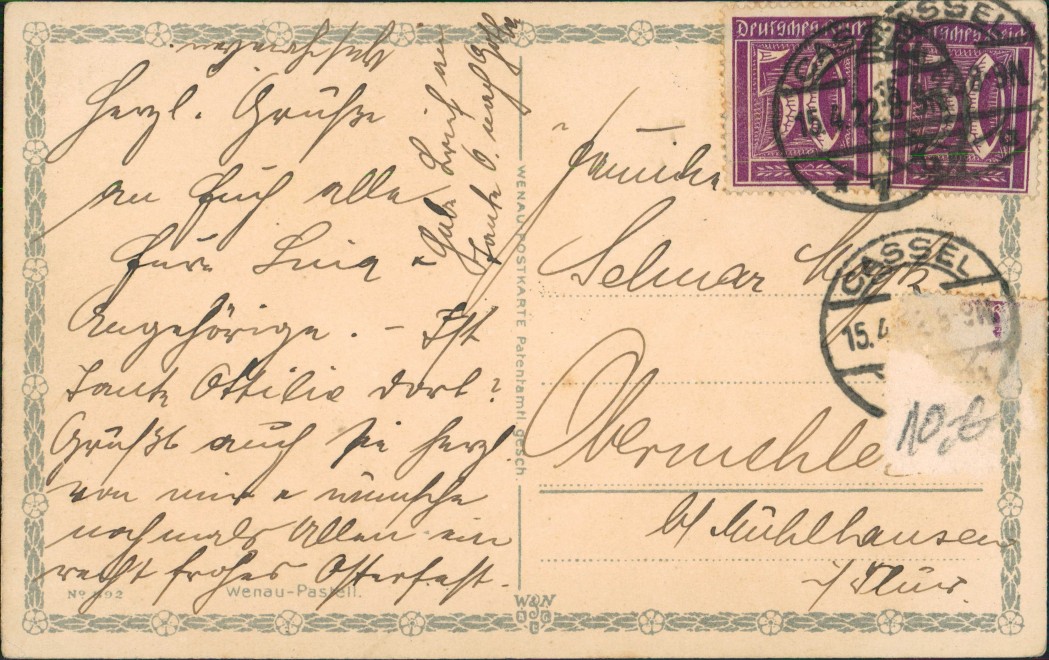 Herzl. Grüße
an Euch alle
Eure Lina u
Angehörige. – Ist
Tante Ottilie dort?
Grüßt auch sie herzl.
von mir u wünsche
nochmals Allen ein
recht frohes Osterfest.
Habe Brief an
Tante O. nach Gotha
Familie
Selmar
Obermehle
b/ Mühlhausen
i/ Thür.
WENAU-POSTKARTE Patentamtl. gesch.
No 892
Wenau-Pastell.
W&N
Deutsches Reich
Deutsches Reich
CASSEL
15.4.22.8-9N
CASSEL
15.4
8-9N
10,-